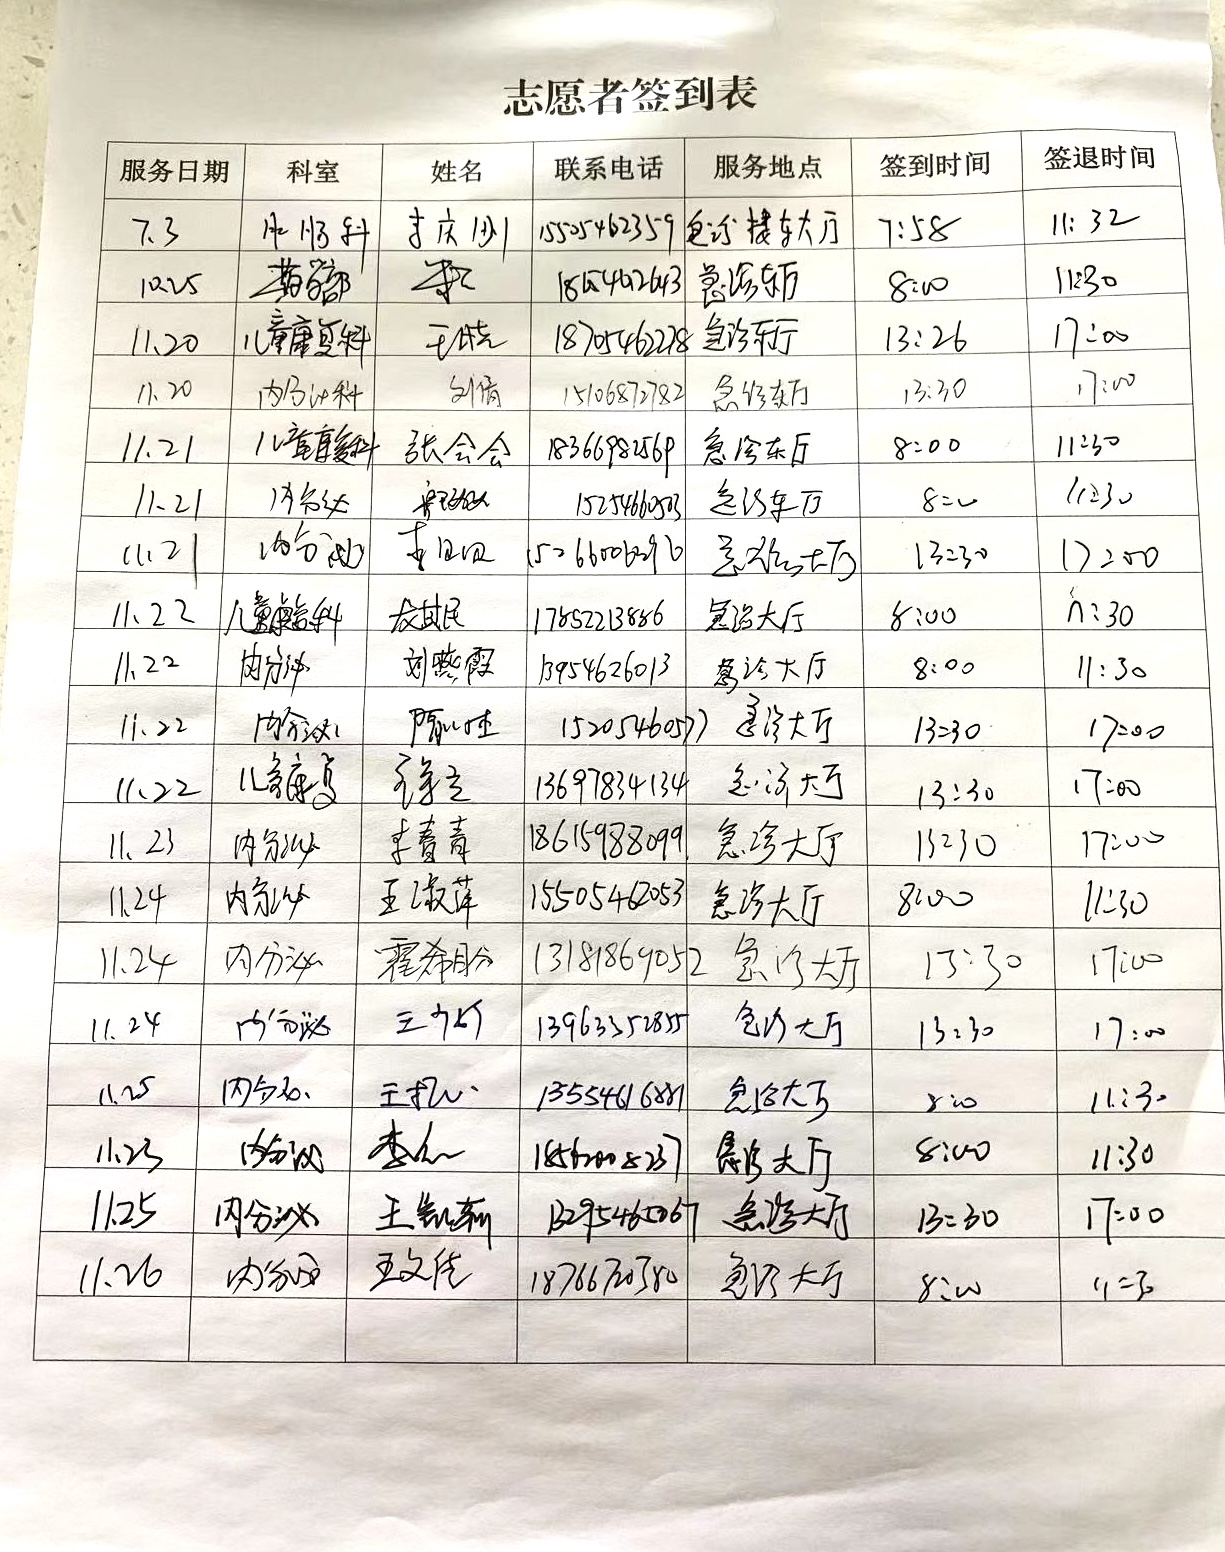 志愿者签到表
服务日期 科室 姓名 联系电话 服务地点 签到时间 签退时间
7.3 肛肠科 李庆 15505462359 急诊楼东大厅 7:58 11:32
10.25 药学部 急诊东厅 8:00 11:30
11.20 儿童康复科 王晓 18705462278 急诊东厅 13:26 17:00
11.20 内分泌科 刘倩 15106872782 急诊东厅 13:30 17:00
11.21 儿童康复科 张会会 18366982569 急诊东厅 8:00 11:30
11.21 内分泌 急诊东厅 8:00 11:30
11.21 内分泌 急诊大厅 13:30 17:00
11.22 儿童康复科 17852213886 急诊大厅 8:00 11:30
11.22 内分泌 刘燕霞 13954626013 急诊大厅 8:00 11:30
11.22 内分泌 15205460577 急诊大厅 13:30 17:00
11.22 儿童康复 13697834134 急诊大厅 13:30 17:00
11.23 内分泌 李青青 18615988099 急诊大厅 13:30 17:00
11.24 内分泌 王淑萍 15505462053 急诊大厅 8:00 11:30
11.24 内分泌 霍希 13181869052 急诊大厅 13:30 17:00
11.24 内分泌 王 13963352855 急诊大厅 13:30 17:00
11.25 内分泌 王 13554616881 急诊大厅 8:00 11:30
11.25 内分泌 李 急诊大厅 8:00 11:30
11.25 内分泌 王 13295465067 急诊大厅 13:30 17:00
11.26 内分泌 王文佳 18766720380 急诊大厅 8:00 11:30